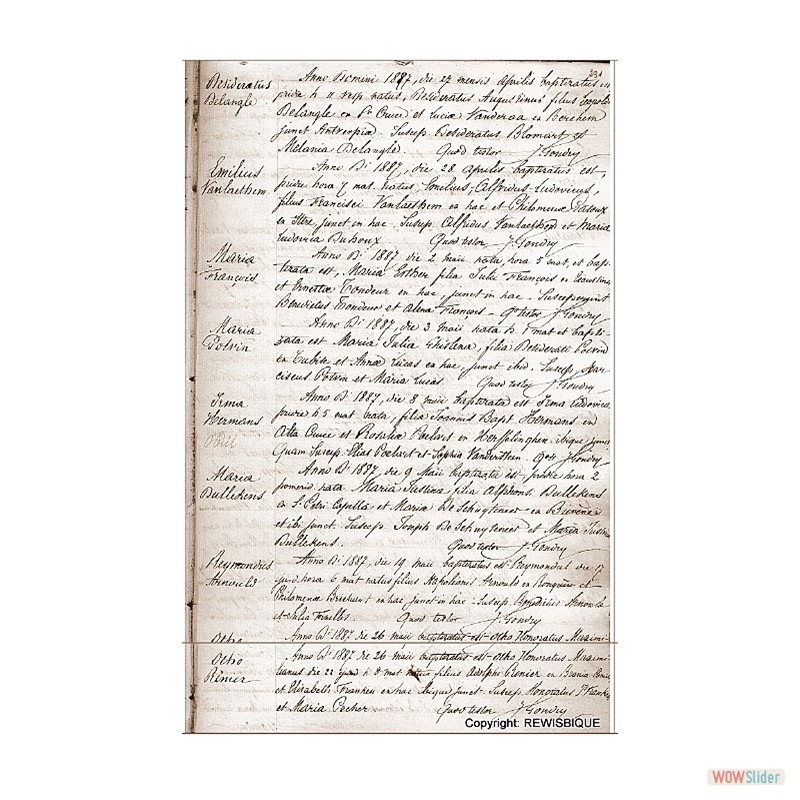 231
Desideratus Delangle
Anno Domini 1887, die 27 mensis Aprilis baptizatus est
pridie h 11 vesp natus, Desideratus Augustinus filius Leopoldi
Delangle en Sta Cruce et Lucia Vanderaa en Berchem
junct Antverpiæ. Suscep. Desideratus Blomart et
Melania Delangle. Quod testor J. Gondry
Emilius Vanlaethem
Anno Di 1887, die 28 Aprilis baptizatus est,
pridie hora 7 mat. natus, Emilius, Alfridus, Ludovicus,
filius Francisci Vanlaethem en hac et Philomena
en Ittre, junct in hac. Suscep. Alfridus Vanlaethem et Maria
Ludovica Duhoux Quod testor J. Gondry
Maria François
Anno Di 1887 die 2 maii nata, hora 5 mat, et bap-
tizata est, Maria Esther filia Julii François en
et Ernestæ Tondeur en hac, junct in hac.
Benedictus Tondeur et Alena François - Qd testor J. Gondry
Maria Potvin
Anno Di 1887, die 3 maii nata h 1 mat et bapti-
zata est Maria Julia Ghislena, filia Desiderati Potvin
en Tubize et Annæ Lucas en hac, junct ibid. Suscep. Nar-
cissus Potvin et Maria Lucas. Quod testor J. Gondry
Irma Hermans
Anno Di 1887, die 8 maii baptizata est Irma Ludovica
pridie h 5 mat nata, filia Joannis Bapt Hermans en
Alta Cruce et Rosaliæ Poelart en Herffelinghen ibique junct.
Quam Suscep. Elias Poelart et Sophia Qd t J. Gondry
Maria Bullekens
Anno Di 1887, die 9 Maii baptizata est, pridie hora 2
pomerid. nata Maria Justina filia Alphonsi Bullekens
en St Petri Capella et Mariæ De Schuyteneer en
et ibi junct. Suscep. Joseph De Schuyteneer et Maria Justina
Bullekens. Quod testor J. Gondry
Reymondus Arnould
Anno Di 1887, die 19 maii baptizatus est Reymondus die 17
hora 6 mat natus filius Napoleonis Arnould en
Philomenæ en hac junct in hac. Suscep. Benedictus Arnould
et Julia Quod testor J. Gondry
Otho
Anno Di 1887 die 26 maii baptizatus est Otho Honoratus Maximi-
Otho Rinier
Anno Di 1887 die 26 maii baptizatus est Otho Honoratus Maximi-
lianus die 22 h 8 mat natus filius Adolphi Rinier en Brania
et Elisabeth Franken en hac ibique junct. Suscep. Honoratus Franken
et Maria Pecher Quod testor J. Gondry
Copyright: REWISBIQUE
WOWSlider